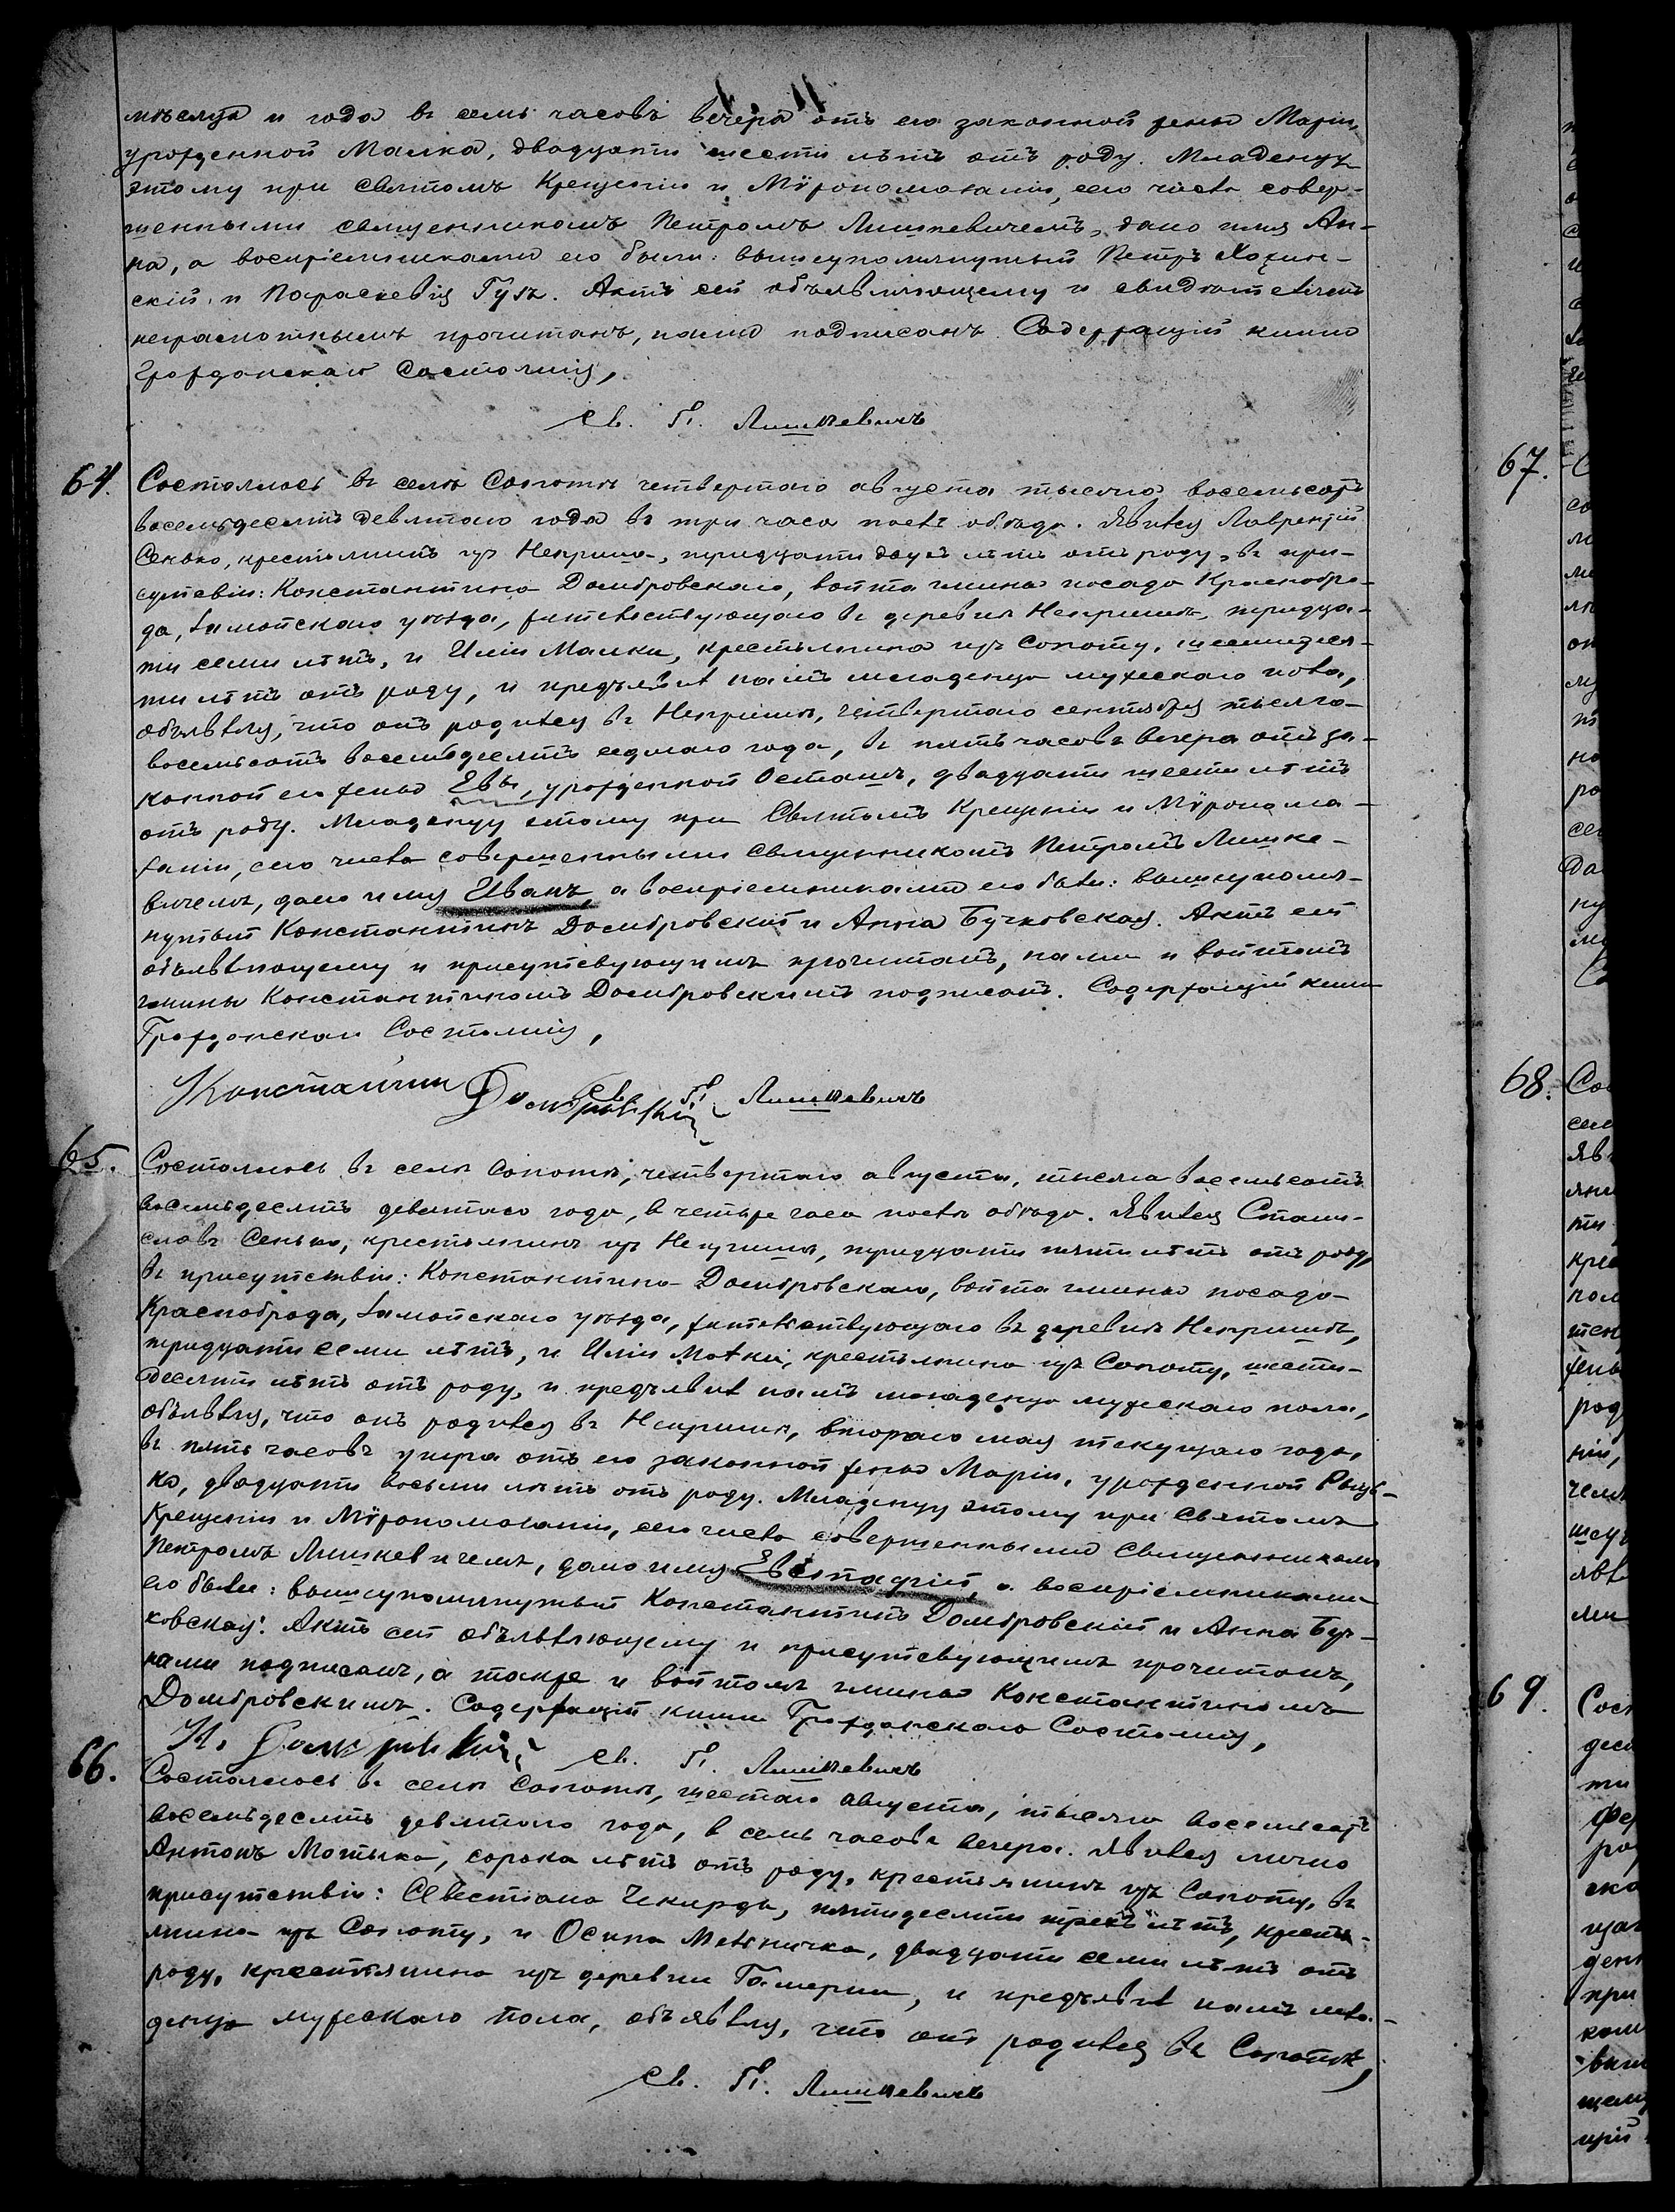 мѣсяца и года въ семь часовъ вечера отъ его законной жены Маріи,
урожденной Малка, двадцати шести лѣтъ отъ роду. Младенцу
этому при святомъ Крещеніи и Мѵропомазаніи, сего числа совер-
шенными священникомъ Петромъ Лишкевичемъ, дано имя Ан-
на, а воспріемниками его были: вышеупомянутый Петръ
скій и Параскевія Гузъ. Актъ сей объявляющему и свидѣтелямъ
неграмотнымъ прочитанъ, нами подписанъ. Содержащій книги
Гражданскаго Состоянія,
Св. П. Лишкевичъ
64. Состоялось въ селѣ Сопотѣ четвертаго августа тысяча восемьсотъ
восемьдесятъ девятаго года въ три часа послѣ обѣда. Явился Лаврентій
Сенько, крестьянинъ изъ Неприша, тридцати двухъ лѣтъ отъ роду, въ при-
сутствіи: Константина Домбровскаго, войта гмины посада Краснобро-
да, Замойскаго уѣзда, жительствующаго въ деревнѣ Непришѣ, тридца-
ти семи лѣтъ, и Иліи Малки, крестьянина изъ Сопоту, шестидеся-
ти лѣтъ отъ роду, и предъявилъ намъ младенца мужескаго пола,
объявляя, что онъ родился въ Непришѣ, четвертаго сентября тысяча
восемьсотъ восемьдесятъ седмаго года, въ пять часовъ вечера отъ за-
конной его жены Евы, урожденной Осташъ, двадцати шести лѣтъ
отъ роду. Младенцу этому при Святомъ Крещеніи и Мѵропома-
заніи, сего числа совершенными Священникомъ Петромъ Лишке-
вичемъ, дано имя Иванъ, а воспріемниками его были: вышеупомя-
нутый Константинъ Домбровскій и Анна Бучковская. Актъ сей
объявляющему и присутствующимъ прочитанъ, нами и войтомъ
гмины Константиномъ Домбровскимъ подписанъ. Содержащій книги
Гражданскаго Состоянія,
Константин Домбровскій Св. П. Лишкевичъ
65. Состоялось въ селѣ Сопотѣ, четвертаго августа, тысяча восемьсотъ
восемьдесятъ девятаго года, въ четыре часа послѣ обѣда. Явился Стани-
славъ Сенько, крестьянинъ изъ Неприша, тридцати пяти лѣтъ отъ роду,
въ присутствіи: Константина Домбровскаго, войта гмины посада
Красноброда, Замойскаго уѣзда, жительствующаго въ деревнѣ Непришѣ,
тридцати семи лѣтъ, и Иліи Малки, крестьянина изъ Сопоту, шести-
десяти лѣтъ отъ роду, и предъявилъ намъ младенца мужескаго пола,
объявляя, что онъ родился въ Непришѣ, втораго мая текущаго года,
въ пять часовъ утра отъ его законной жены Маріи, урожденной
ко, двадцати восьми лѣтъ отъ роду. Младенцу этому при Святомъ
Крещеніи и Мѵропомазаніи, сего числа совершенными Священникомъ
Петромъ Лишкевичемъ, дано имя Евстафій, а воспріемниками
его были: вышеупомянутый Константинъ Домбровскій и Анна Буч-
ковская. Актъ сей объявляющему и присутствующимъ прочитанъ,
нами подписанъ, а также и войтомъ гмины Константиномъ
Домбровскимъ. Содержащій книги Гражданскаго Состоянія,
К. Домбровскій Св. П. Лишкевичъ
66. Состоялось въ селѣ Сопотѣ, шестаго августа, тысяча восемьсотъ
восемьдесятъ девятаго года, въ семь часовъ вечера. Явился лично
Антонъ Мотыка, сорока лѣтъ отъ роду, крестьянинъ изъ Сопоту, въ
присутствіи: Севестіана Чекирды, пятидесяти трехъ лѣтъ, кресть-
янина изъ Сопоту, и Осипа Мельничка, двадцати семи лѣтъ отъ
роду, крестьянина изъ деревни Гамерни, и предъявилъ намъ мла-
денца мужескаго пола, объявляя, что онъ родился въ Сопотѣ,
Св. П. Лишкевичъ
67.
68.
69.